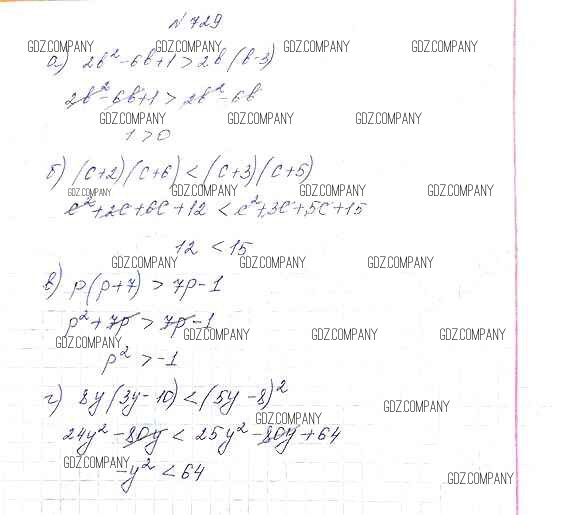 N 729
GDZ.COMPANY GDZ.COMPANY GDZ.COMPANY GDZ.COMPANY
а) 2b²-6b+1>2b(b-3)
2b²-6b+1>2b²-6b
GDZ.COMPANY GDZ.COMPANY GDZ.COMPANY
1>0
б) (c+2)(c+6)<(c+3)(c+5)
GDZ.COMPANY GDZ.COMPANY GDZ.COMPANY GDZ.COMPANY
c²+2c+6c+12<c²+3c+5c+15
12<15
GDZ.COMPANY GDZ.COMPANY GDZ.COMPANY
в) p(p+7)>7p-1
p²+7p>7p-1
GDZ.COMPANY GDZ.COMPANY GDZ.COMPANY GDZ.COMPANY
p²>-1
г) 8y(3y-10)<(5y-8)²
GDZ.COMPANY GDZ.COMPANY
24y²-80y<25y²-80y+64
GDZ.COMPANY
-y²<64
GDZ.COMPANY